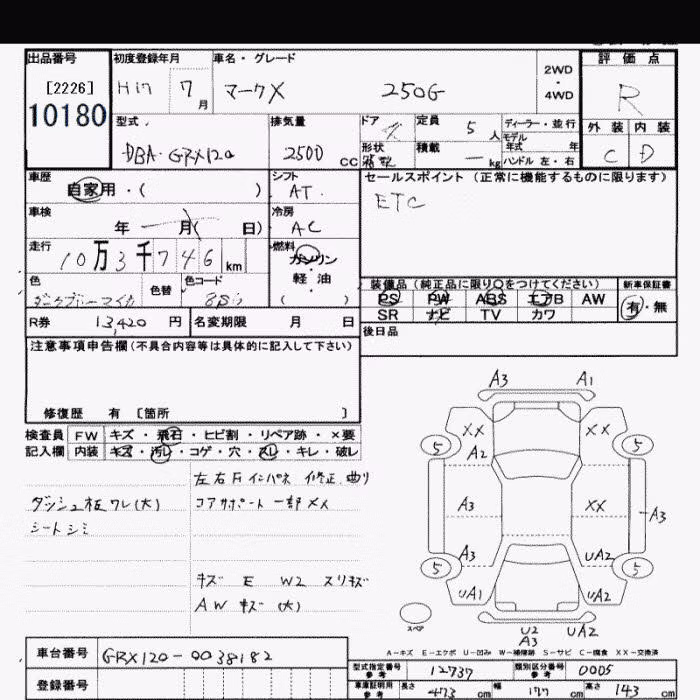 出品番号
[2226]
10180
初度登録年月
H17 7月
車名・グレード
マークX 250G
2WD
・
4WD
評価点
R
外装 内装
C D
型式
DBA-GRX120
排気量
2500 CC
ドア
形状
定員 5人
積載 — kg
ディーラー・並行
モデル年式 年
ハンドル 左・右
車歴
自家用・( )
シフト
AT
車検
年 月( 日)
冷房
AC
走行
10万3千746km
燃料
ガソリン
・
軽油
( )
色
色替
色コード
R券 13,420円
名変期限 月 日
セールスポイント(正常に機能するものに限ります)
ETC
装備品(純正品に限り○をつけてください)
PS PW ABS エアB AW
SR ナビ TV カワ
新車保証書
有・無
後日品
注意事項申告欄(不具合内容等は具体的に記入して下さい)
修復歴 有 [箇所 ]
検査員 FW キズ・飛石・ヒビ割・リペア跡・×要
記入欄 内装 キズ・汚レ・コゲ・穴・スレ・キレ・破レ
左右Fインパネ 修正、曲り
コアサポート一部メメ
ダッシュ板ワレ(大)
シートシミ
キズ E W2 スリキズ
AW キズ (大)
A3 A1
XX XX
5 5
A2
A3 XX A3
A3 UA2
5 5
UA1 UA2
スペア
U2 UA2
A3
A-キズ E-エクボ U-凹み W-補修跡 S-サビ C-腐食 XX-交換済
車台番号 GRX120-0038182
登録番号
型式指定番号 参考 12737
類別区分番号 参考 0005
車庫証明用 参考 長さ 473 cm 幅 177 cm 高さ 143 cm